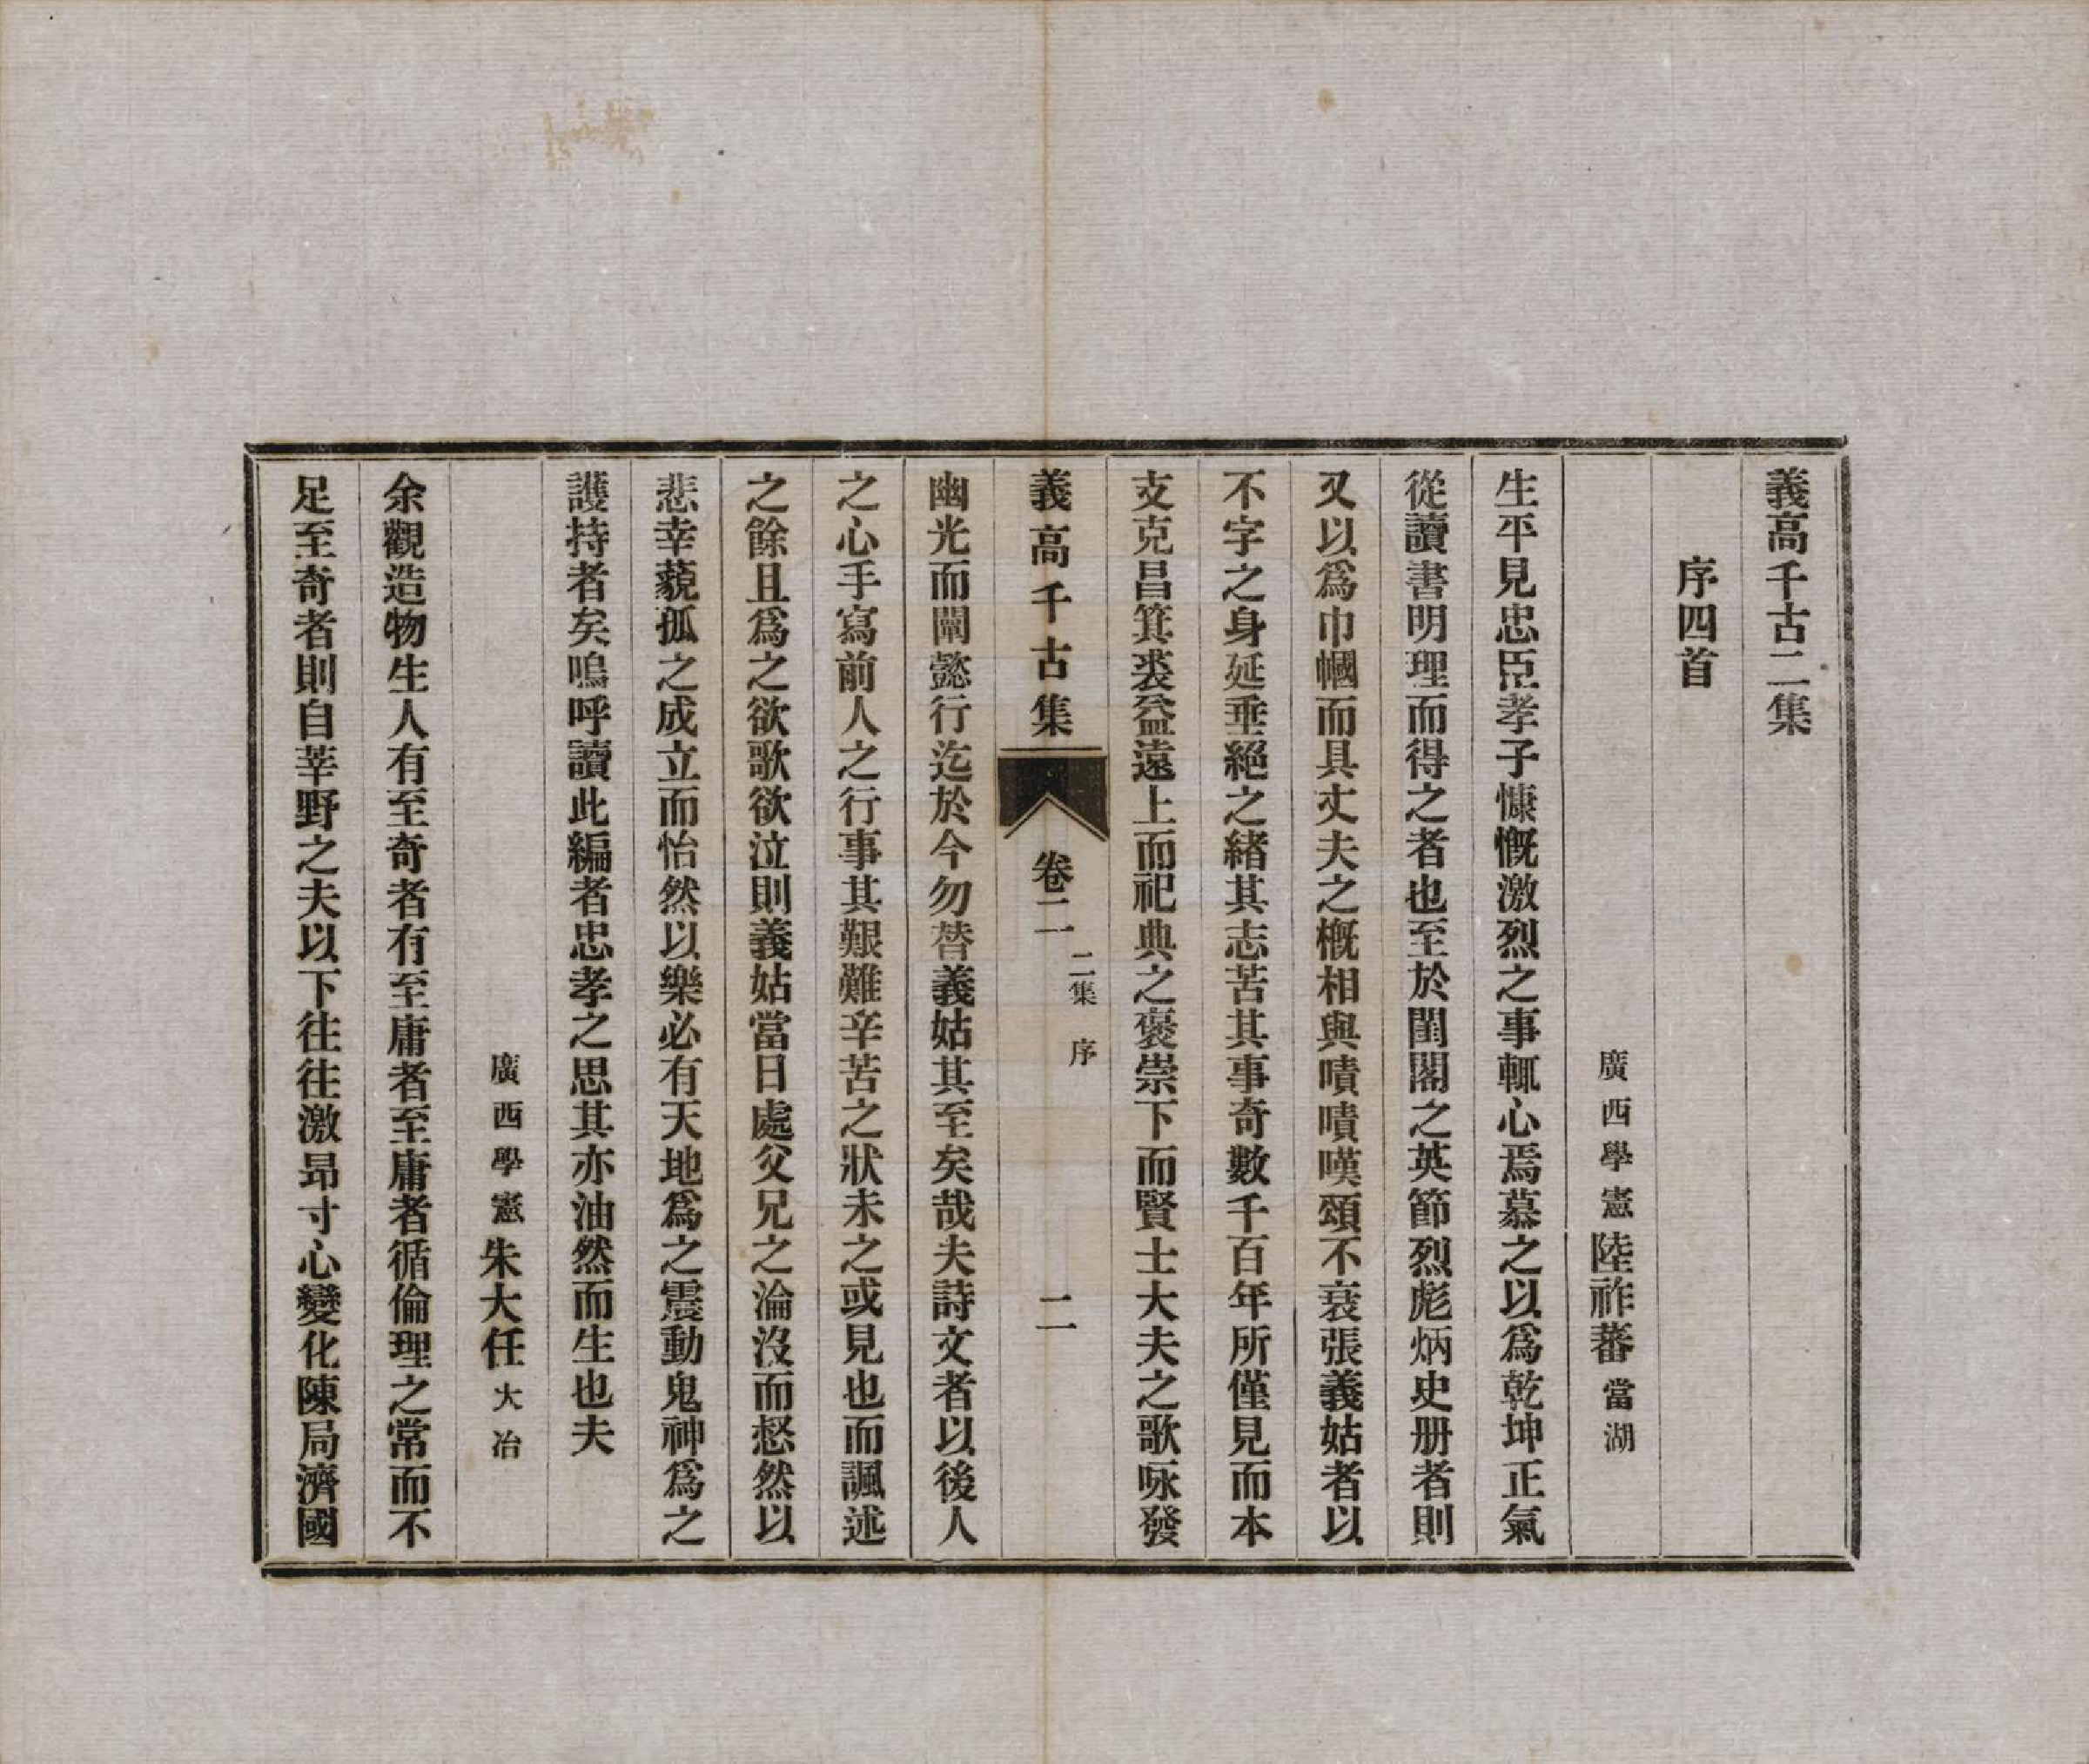 義高千古二集
序四首
廣西學憲陸祚蕃當湖
生平見忠臣孝子慷慨激烈之事輒心焉慕之以爲乾坤正氣
從讀書明理而得之者也至於閨閣之英節烈彪炳史册者則
又以爲巾幗而具丈夫之概相與嘖嘖嘆頌不衰張義姑者以
不字之身延垂絕之緒其志苦其事奇數千百年所僅見而本
支克昌箕裘益遠上而祀典之褒崇下而賢士大夫之歌咏發
義高千古集
卷二
二集 序
二
幽光而闡懿行迄於今勿替義姑其至矣哉夫詩文者以後人
之心手寫前人之行事其艱難辛苦之狀未之或見也而諷述
之餘且爲之欲歌欲泣則義姑當日處父兄之淪沒而愁然以
悲幸藐孤之成立而怡然以樂必有天地爲之震動鬼神爲之
護持者矣嗚呼讀此編者忠孝之思其亦油然而生也夫
廣西學憲朱大任大冶
余觀造物生人有至奇者有至庸者至庸者循倫理之常而不
足至奇者則自莘野之夫以下往往激昂寸心變化陳局濟國